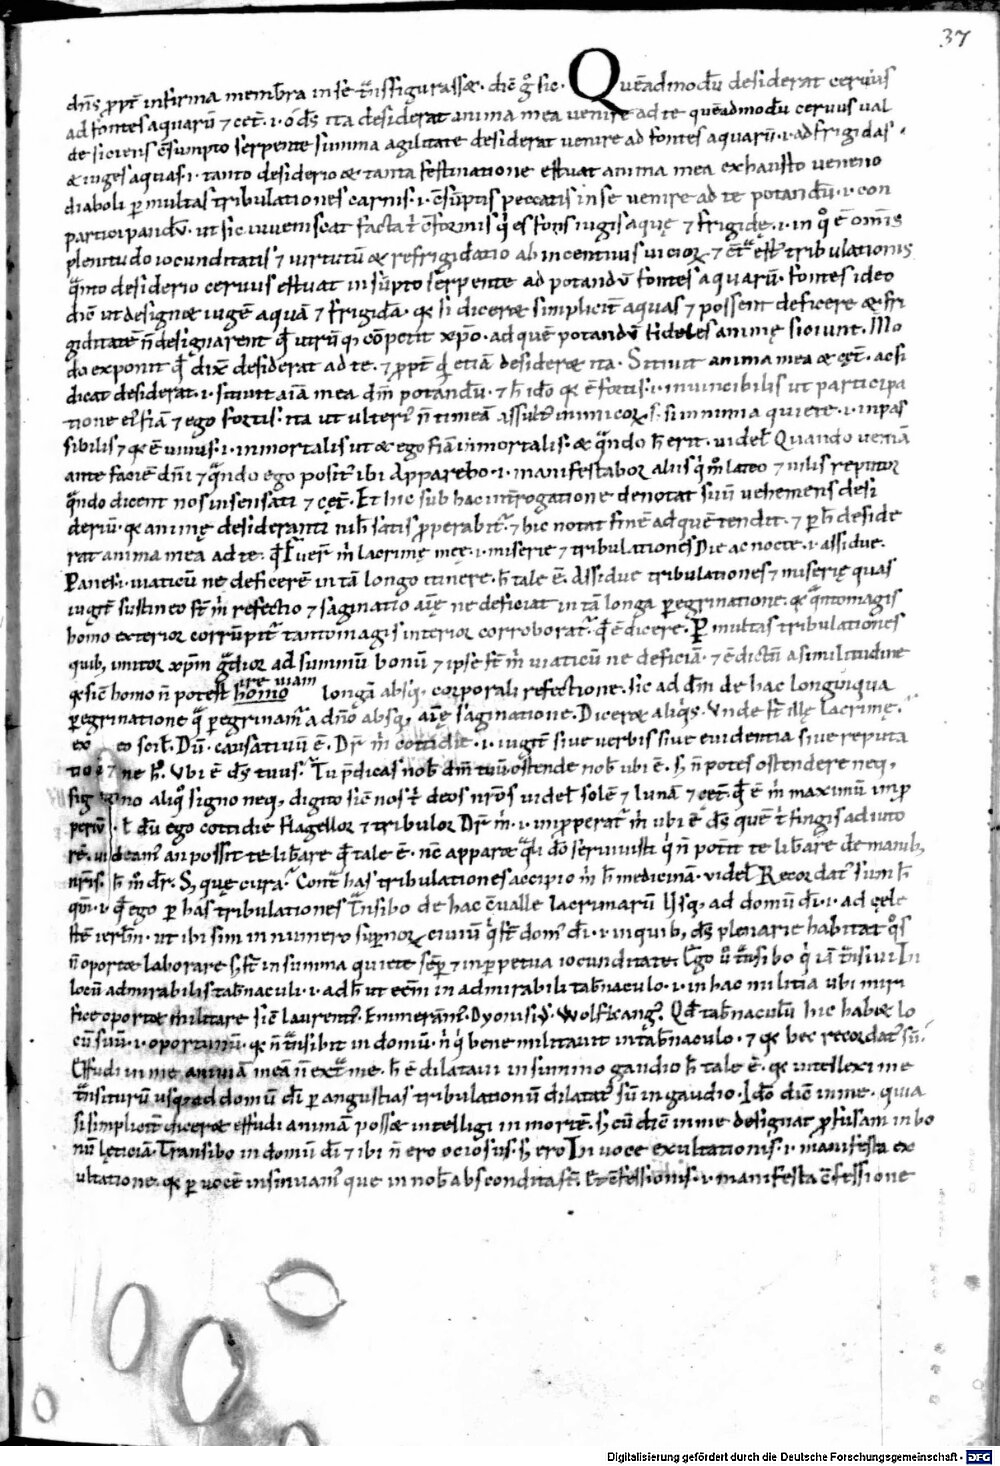 37
dn̄s ꝓpt̄ infirma membra in se t̄nsfigurasse. dic̄ g̊ sic. Quēadmodū desiderat cervus
ad fontes aquarū ⁊ cet̄. i. o ds̄ ita desiderat anima mea venire ad te quēadmodū cervus val
de siciens c̄sumpto serpente summa agilitate desiderat venire ad fontes aquarū. i. ad frigidas
& iuges aquas. i. tanto desiderio & tanta festinatione estuat anima mea exhausto veneno
diaboli ꝑ multas tribulationes carnis. i. c̄sūptis peccatis in se venire ad te potandū. i. con
participandū. ut sic iuveniscat facta t̄ c̄formis q̇ es fons iugis aquę ⁊ frigidę. i. in q̊ ē om̄is
plenitudo iocunditatis ⁊ virtutū & refrigidatio ab incentivis vicioꝝ ⁊ est tribulationis
desiderio cervus estuat in sūpto serpente ad potandū fontes aquarū. fontes ideo
dic̄ ut designet iugē aquā ⁊ frigidā. si diceret simplicit̄ aquas ⁊ possent deficere & fri
giditatē n̄ designarent q̄d utrūq, cōpetit xp̄o. ad quē potandū fideles animę siciunt. Mo
do exponit q̄d dixit desiderat ad te. ⁊ ꝓpt̄ q̄d etiā desideret ita. Sitivit anima mea & cęt̄. acsi
dicat desiderat. i. sitivit aīa mea dm̄ potandū. ⁊ h̄ ido ē fortis. i. invincibilis ut participa
tione ei' fiā ⁊ ego fortis. ita ut ulteri' n̄ timeā assult' inimicoꝝ. s. sim in una quiete. i. inpas
sibilis ⁊ ē vivus. i. inmortalis ut & ego fiā inmortalis. & q̄ndo h̄ erit. videl̄ Quando veniā
ante faciē dn̄i ⁊ q̄ndo ego posit' ibi apparebo. i. manifestabor aliis q̇ m̊ lateo ⁊ vilis reputor
q̄ndo dicent nos insensati ⁊ cęt̄. Et hic sub hac int̄rogatione denotat suū vehemens desi
deriū. animę desideranti nih̄ satis ꝓperabit̄. ⁊ hic notat finē ad quē tendit. ⁊ ꝑ h̄ deside
rat anima mea ad te. Fuer̄ m̄ lacrimę męę. i. miserię ⁊ tribulationes Die ac nocte. i. assidue.
Panes. i. viaticū ne deficerē in tā longo itinere. h̄ tale ē. Assidue tribulationes ⁊ miserię quas
iugit̄ sustineo st̄ m̄ refectio ⁊ saginatio aīę ne deficiat in tā longa peregrinatione. q̄ntomagis
homo exterior corrūpit̄ tantomagis interior corroborat̄. q̄d ē dicere. ꝑ multas tribulationes
quib, imitor xp̄m gdior ad summū bonū ⁊ ipse st̄ m̄ viaticū ne deficiā. ⁊ ē dictū a similitudine
sic̄ homo n̄ potest homo ire viam longā absq, corporali refectione. sic ad dm̄ de hac longinqua
ꝑegrinatione q̄ ꝑegrinam̄ a dn̄o absq, aīę saginatione. Diceret aliq̇s. Unde st̄ illę lacrimę.
ex eo scil̄. Dū. causativū ē. Dr̄ m̄ cottidie. i. iugit̄ sive verbis sive evidentia sive reputa
ne h̄. Ubi ē ds̄ tuus. Tu p̄dicas nob̄ dm̄ tuū ostende nob̄ ubi ē. s, n̄ potes ostendere neq,
aliq̊ signo neq, digito sic̄ nos t̄ deos nr̄os videl̄ solē ⁊ lunā ⁊ cęt̄. q̄d ē m̄ maximū inꝓ
periū. l̄ dū ego cottidie flagellor ⁊ tribulor Dr̄ m̄. i. inꝓperat̄ m̄ ubi ē ds̄ quē t̄ fingis adiuto
rē. videam' an possit te lib̄are q̄d tale ē. nc̄ apparet q̄li dō servivisti q̇ n̄ potuit te lib̄are de manib,
nr̄is. h̄ m̄ dr̄. S, quę cura. Cont̄ has tribulationes accipio m̄ h̄ medicinā. videl̄ Recordat' sum h̄
qm̄. i. q̄d ego ꝑ has tribulationes t̄nsibo de hac c̄valle lacrimarū Usq, ad domū dī. i. ad cęle
stē ierl̄m. ut ibi sim in numero sup̄noꝝ civiū q̇ st̄ dom' dī. i. in quib, ds̄ plenarie habitat q̊s
n̄ oportet laborare s, st̄ in summa quiete sēꝑ ⁊ in ꝑpetua iocunditate. Ego v̊ t̄nsibo q̇ iā t̄nsivi In
locū admirabilis tab̄naculi. i. ad h̄ ut ecīm in admirabili tab̄naculo. i. in hac militia ubi miri
fice oportet militare sic̄ laurenti'. Emmeram̄'. Dyonisi'. Wolfkang'. Qd̄ tab̄naculū hic habet lo
cū suū. i. oportunū. n̄ t̄nsibit in domū. n̄ q̇ bene militavit in tab̄naculo. ⁊ hec recordat' sū.
Effudi in me animā meā n̄ ext̄ me. h̄ ē dilatavi in summo gaudio h̄ tale ē. intellexi me
t̄nsiturū usq, ad domū dī ꝑ angustias tribulationū dilatat' sū in gaudio. Ido dic̄ in me. quia
si simplicit̄ diceret effudi animā posset intelligi in mortē. s, cū dic̄ in me. designat ꝓfusam in bo
nū lęticiā. Transibo in domū dī ⁊ ibi n̄ ero ociosus. s, ero In voce exultationis. i. manifesta ex
ultatione. ꝑ vocē insinuam' quę in nob̄ abscondita st̄. Et c̄fessionis. i. manifesta c̄fessione
Digitalisierung gefördert durch die Deutsche Forschungsgemeinschaft - DFG